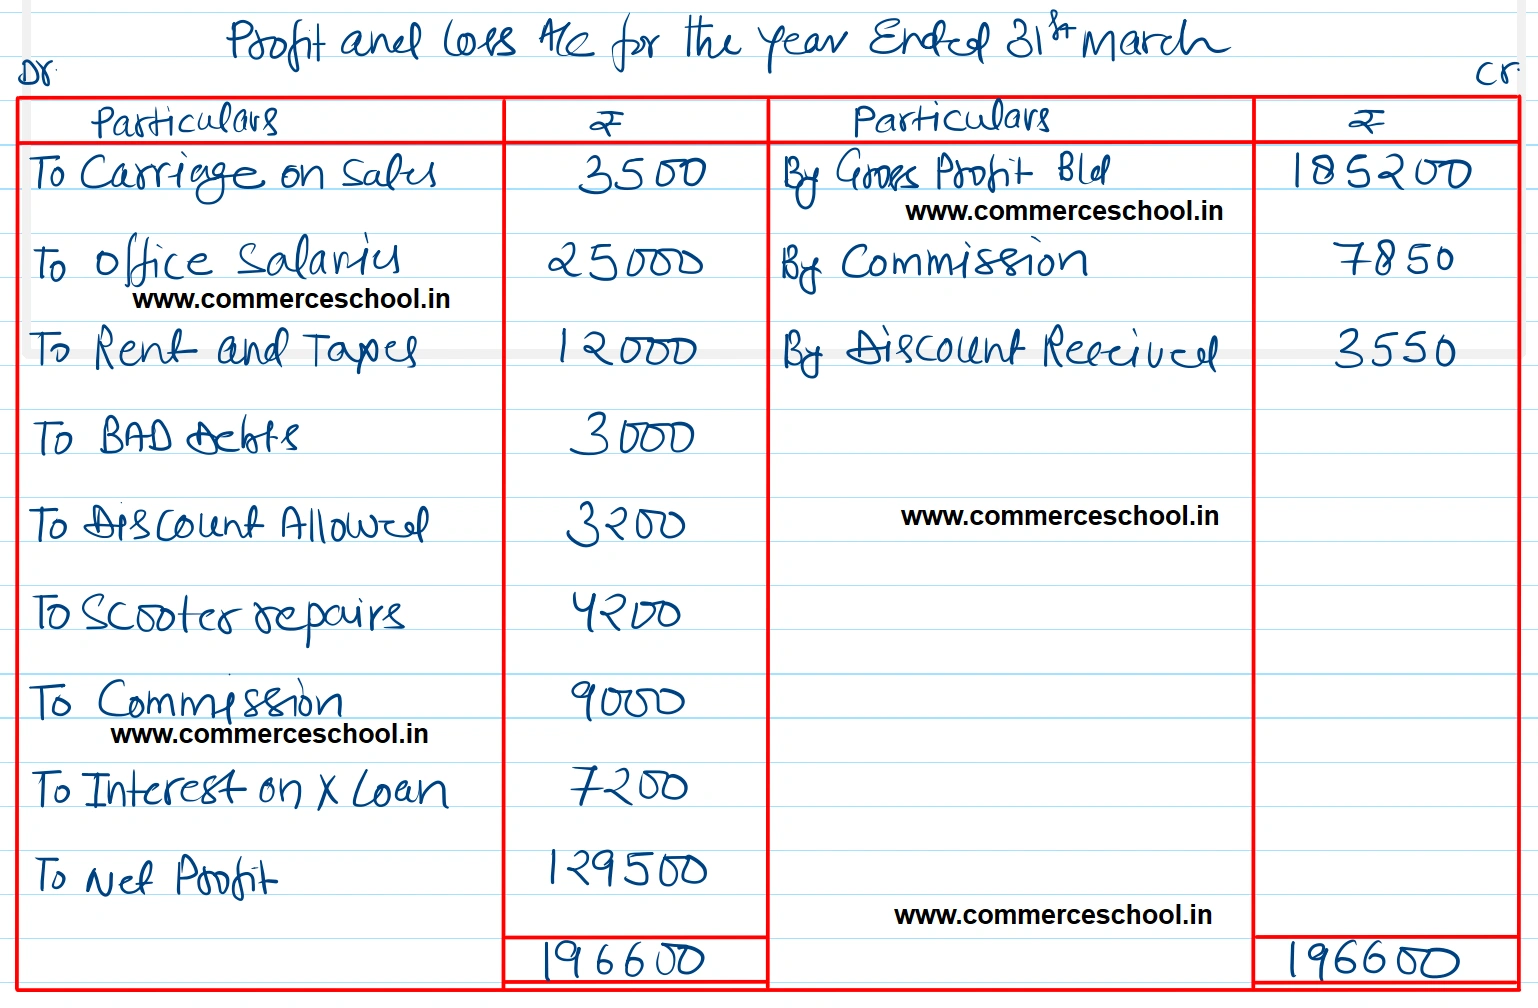 Profit and Loss A/c for the year Ended 31st March
Dr. Cr.
Particulars ₹ Particulars ₹
To Carriage on Sales 3500 By Gross Profit B/d 185200
www.commerceschool.in
To office Salaries 25000 By Commission 7850
www.commerceschool.in
To Rent and Taxes 12000 By Discount Received 3550
To BAD Debts 3000
To Discount Allowed 3200 www.commerceschool.in
To Scooter repairs 4200
To Commission 9000
www.commerceschool.in
To Interest on X Loan 7200
To Net Profit 129500
www.commerceschool.in
196600 196600